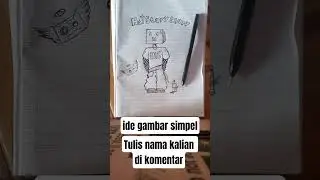 ide gambar simpel
Tulis nama kalian
di komentar